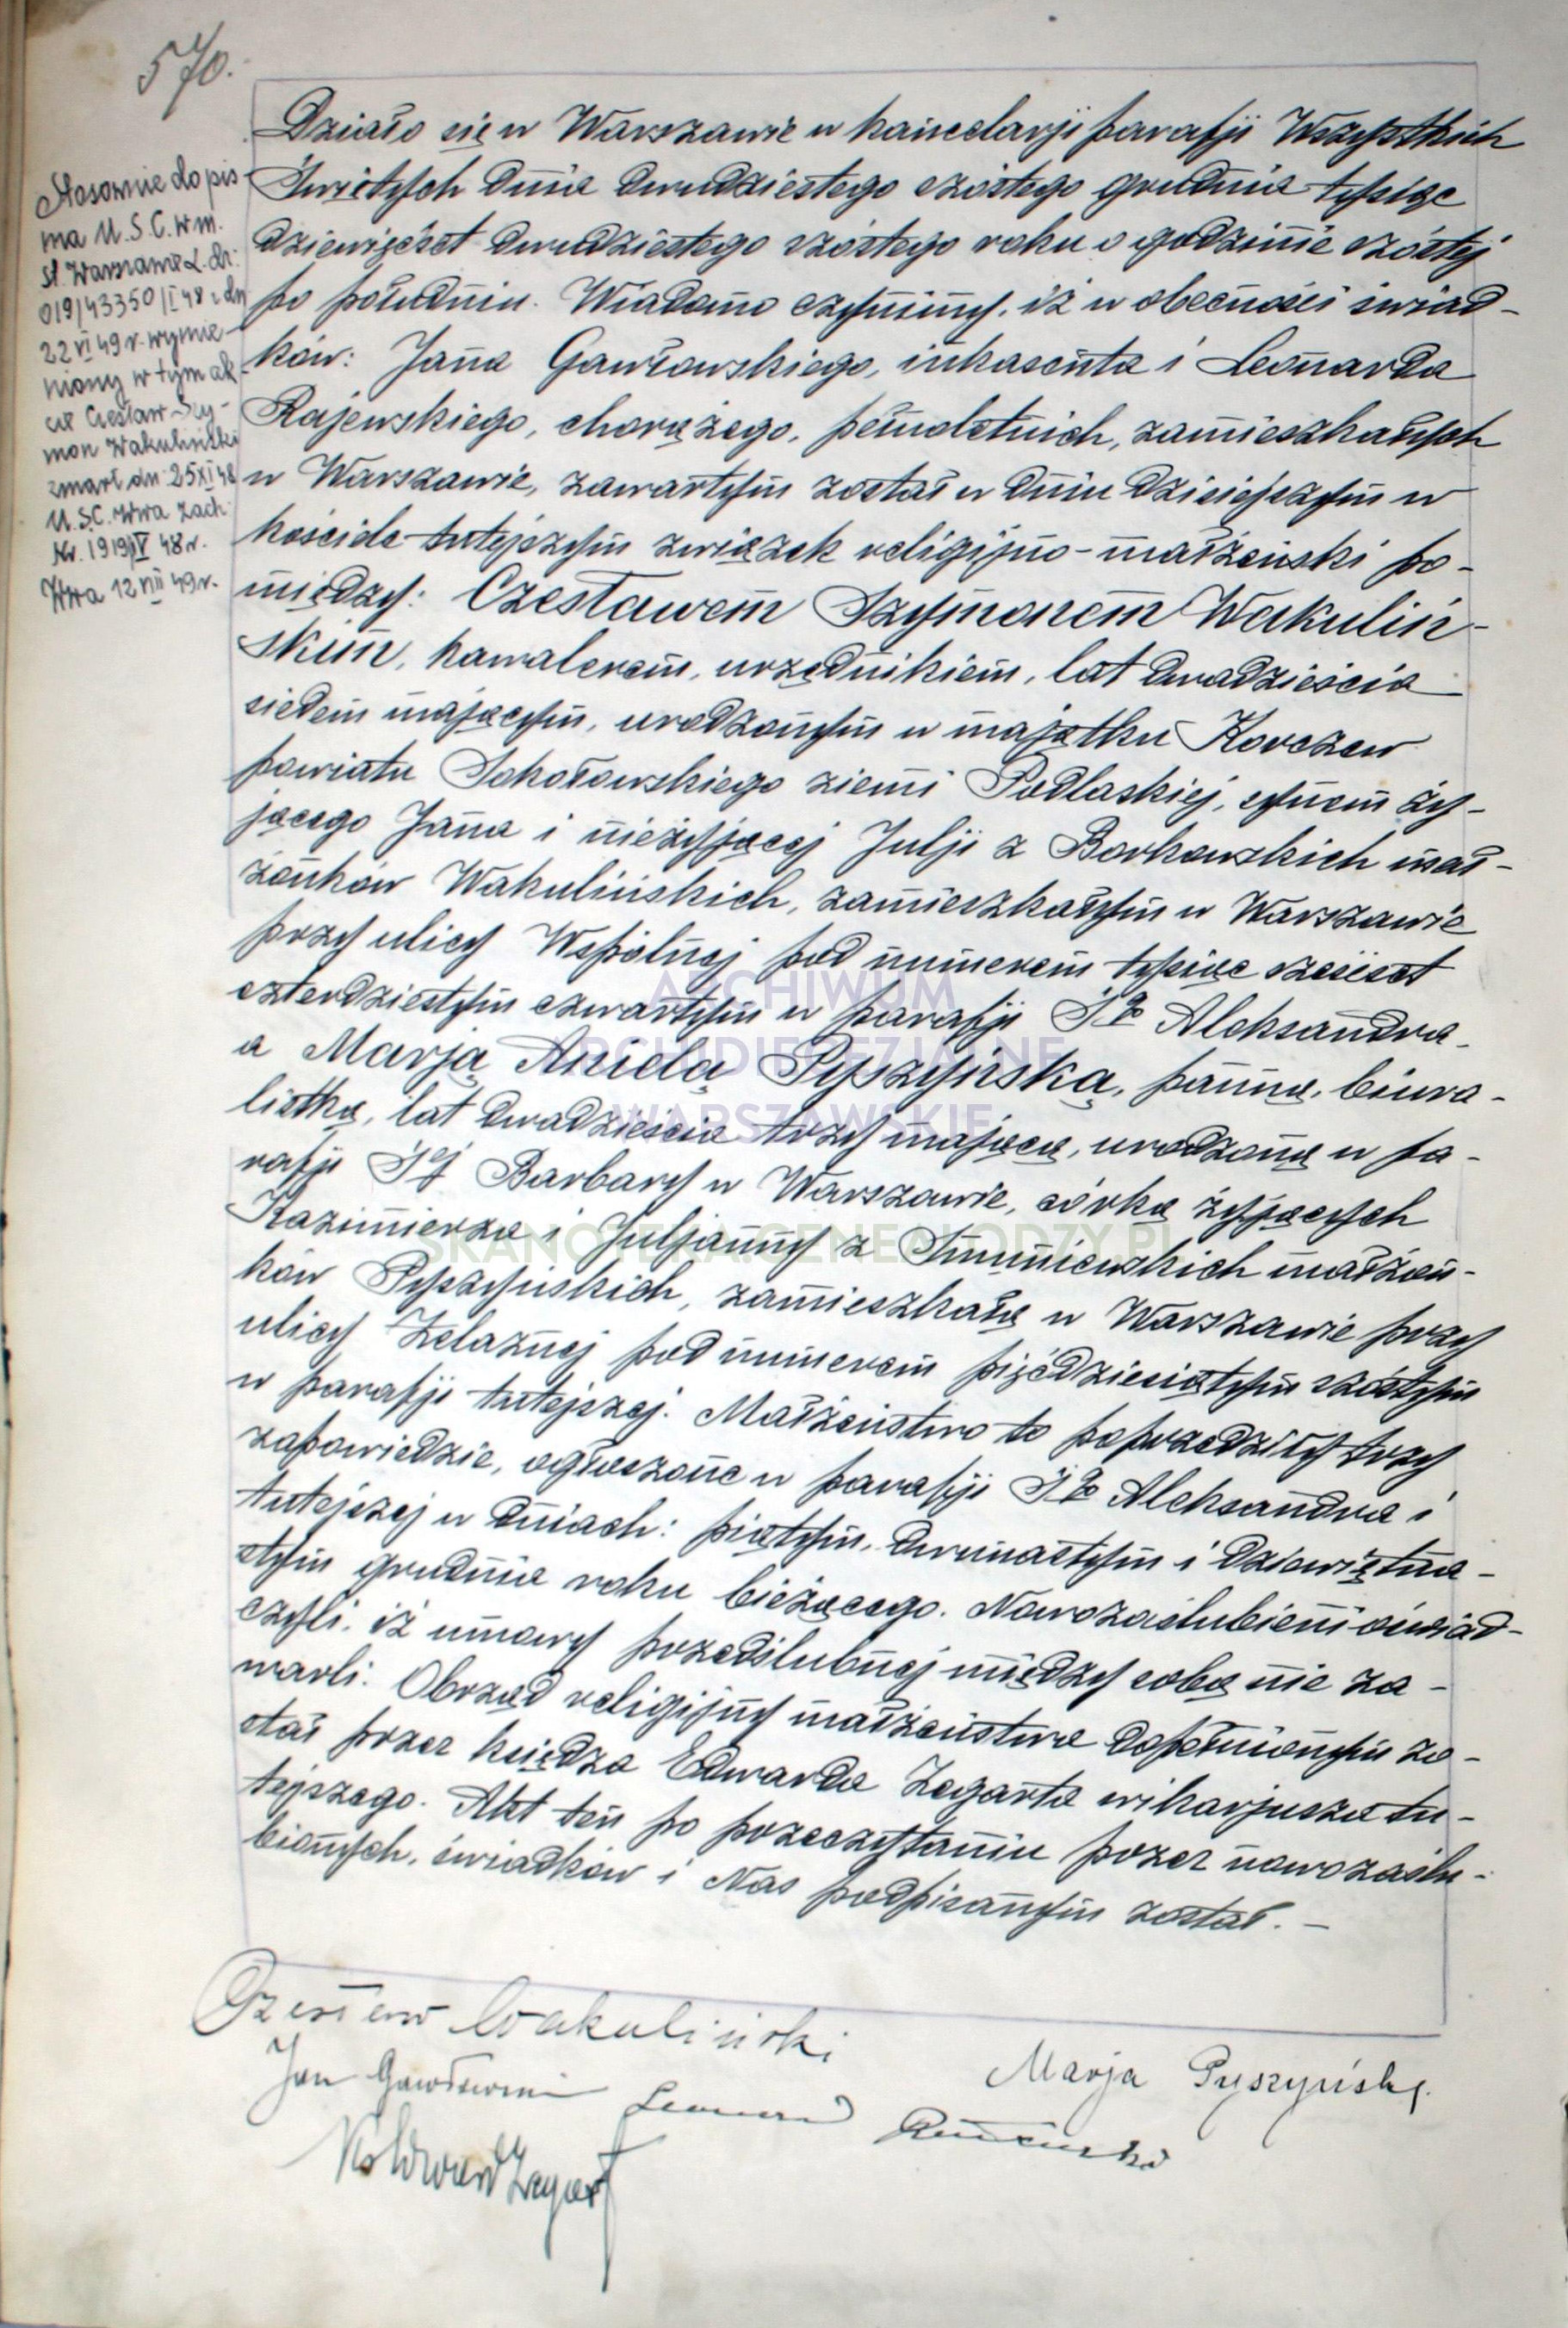 570.
Stosownie do pis-
ma U.S.C. w m.
st. Warszawie L. dz:
019/43350/I 48 z dn
22 VI 49 r. wymie-
niony w tym ak-
cie Czesław Szy-
mon Wakuliński
zmarł dn 25 XI 48
U.S.C. Wwa Zach
Nr. 1919/IV 48 r.
Wwa 12 VIII 49 r.
Działo się w Warszawie w kancelarji parafji Wszystkich
Świętych dnia dwudziestego szóstego grudnia tysiąc
dziewięćset dwudziestego szóstego roku o godzinie szóstej
po południu. Wiadomo czynimy, iż w obecności świad-
ków: Jana Gawłowskiego, inkasenta i Leonarda
Rajewskiego, chorążego, pełnoletnich, zamieszkałych
w Warszawie, zawartym został w dniu dzisiejszym w
kościele tutejszym związek religijno-małżeński po-
między: Czesławem Szymonem Wakuliń-
skim, kawalerem, urzędnikiem, lat dwadzieścia
siedem mającym, urodzonym w majątku Korczew
powiatu Sokołowskiego ziemi Podlaskiej, synem ży-
jącego Jana i nieżyjącej Julji z Borkowskich mał-
żonków Wakulińskich, zamieszkałym w Warszawie
przy ulicy Wspólnej pod numerem tysiąc sześćset
czterdziestym czwartym w parafji Śgo Aleksandra
a Marją Anielą Pyszyńską, panną, biura-
listką, lat dwadzieścia trzy mającą, urodzoną w pa-
rafji Śej Barbary w Warszawie, córką żyjących
Kazimierza i Juljanny z Smuniewskich małżon-
ków Pyszyńskich, zamieszkałą w Warszawie przy
ulicy Żelaznej pod numerem pięćdziesiątym szóstym
w parafji tutejszej. Małżeństwo to poprzedziły trzy
zapowiedzie, ogłoszone w parafji Śgo Aleksandra i
tutejszej w dniach: piątym, dwunastym i dziewiętna-
stym grudnia roku bieżącego. Nowozaślubieni oświad-
czyli, iż umowy przedślubnej między sobą nie za-
warli. Obrząd religijny małżeństwa dopełnionym zo-
stał przez księdza Edwarda Zegarta wikarjusza tu-
tejszego. Akt ten po przeczytaniu przez nowozaślu-
bionych, świadków i Nas podpisanym został. —
Czesław Wakuliński
Marja Pyszyńska
Jan Gawłowski Leonard
Ks Edward Zegart
ARCHIWUM
ARCHIDIECEZJALNE
WARSZAWSKIE
SKANOTEKA.GENEALODZY.PL